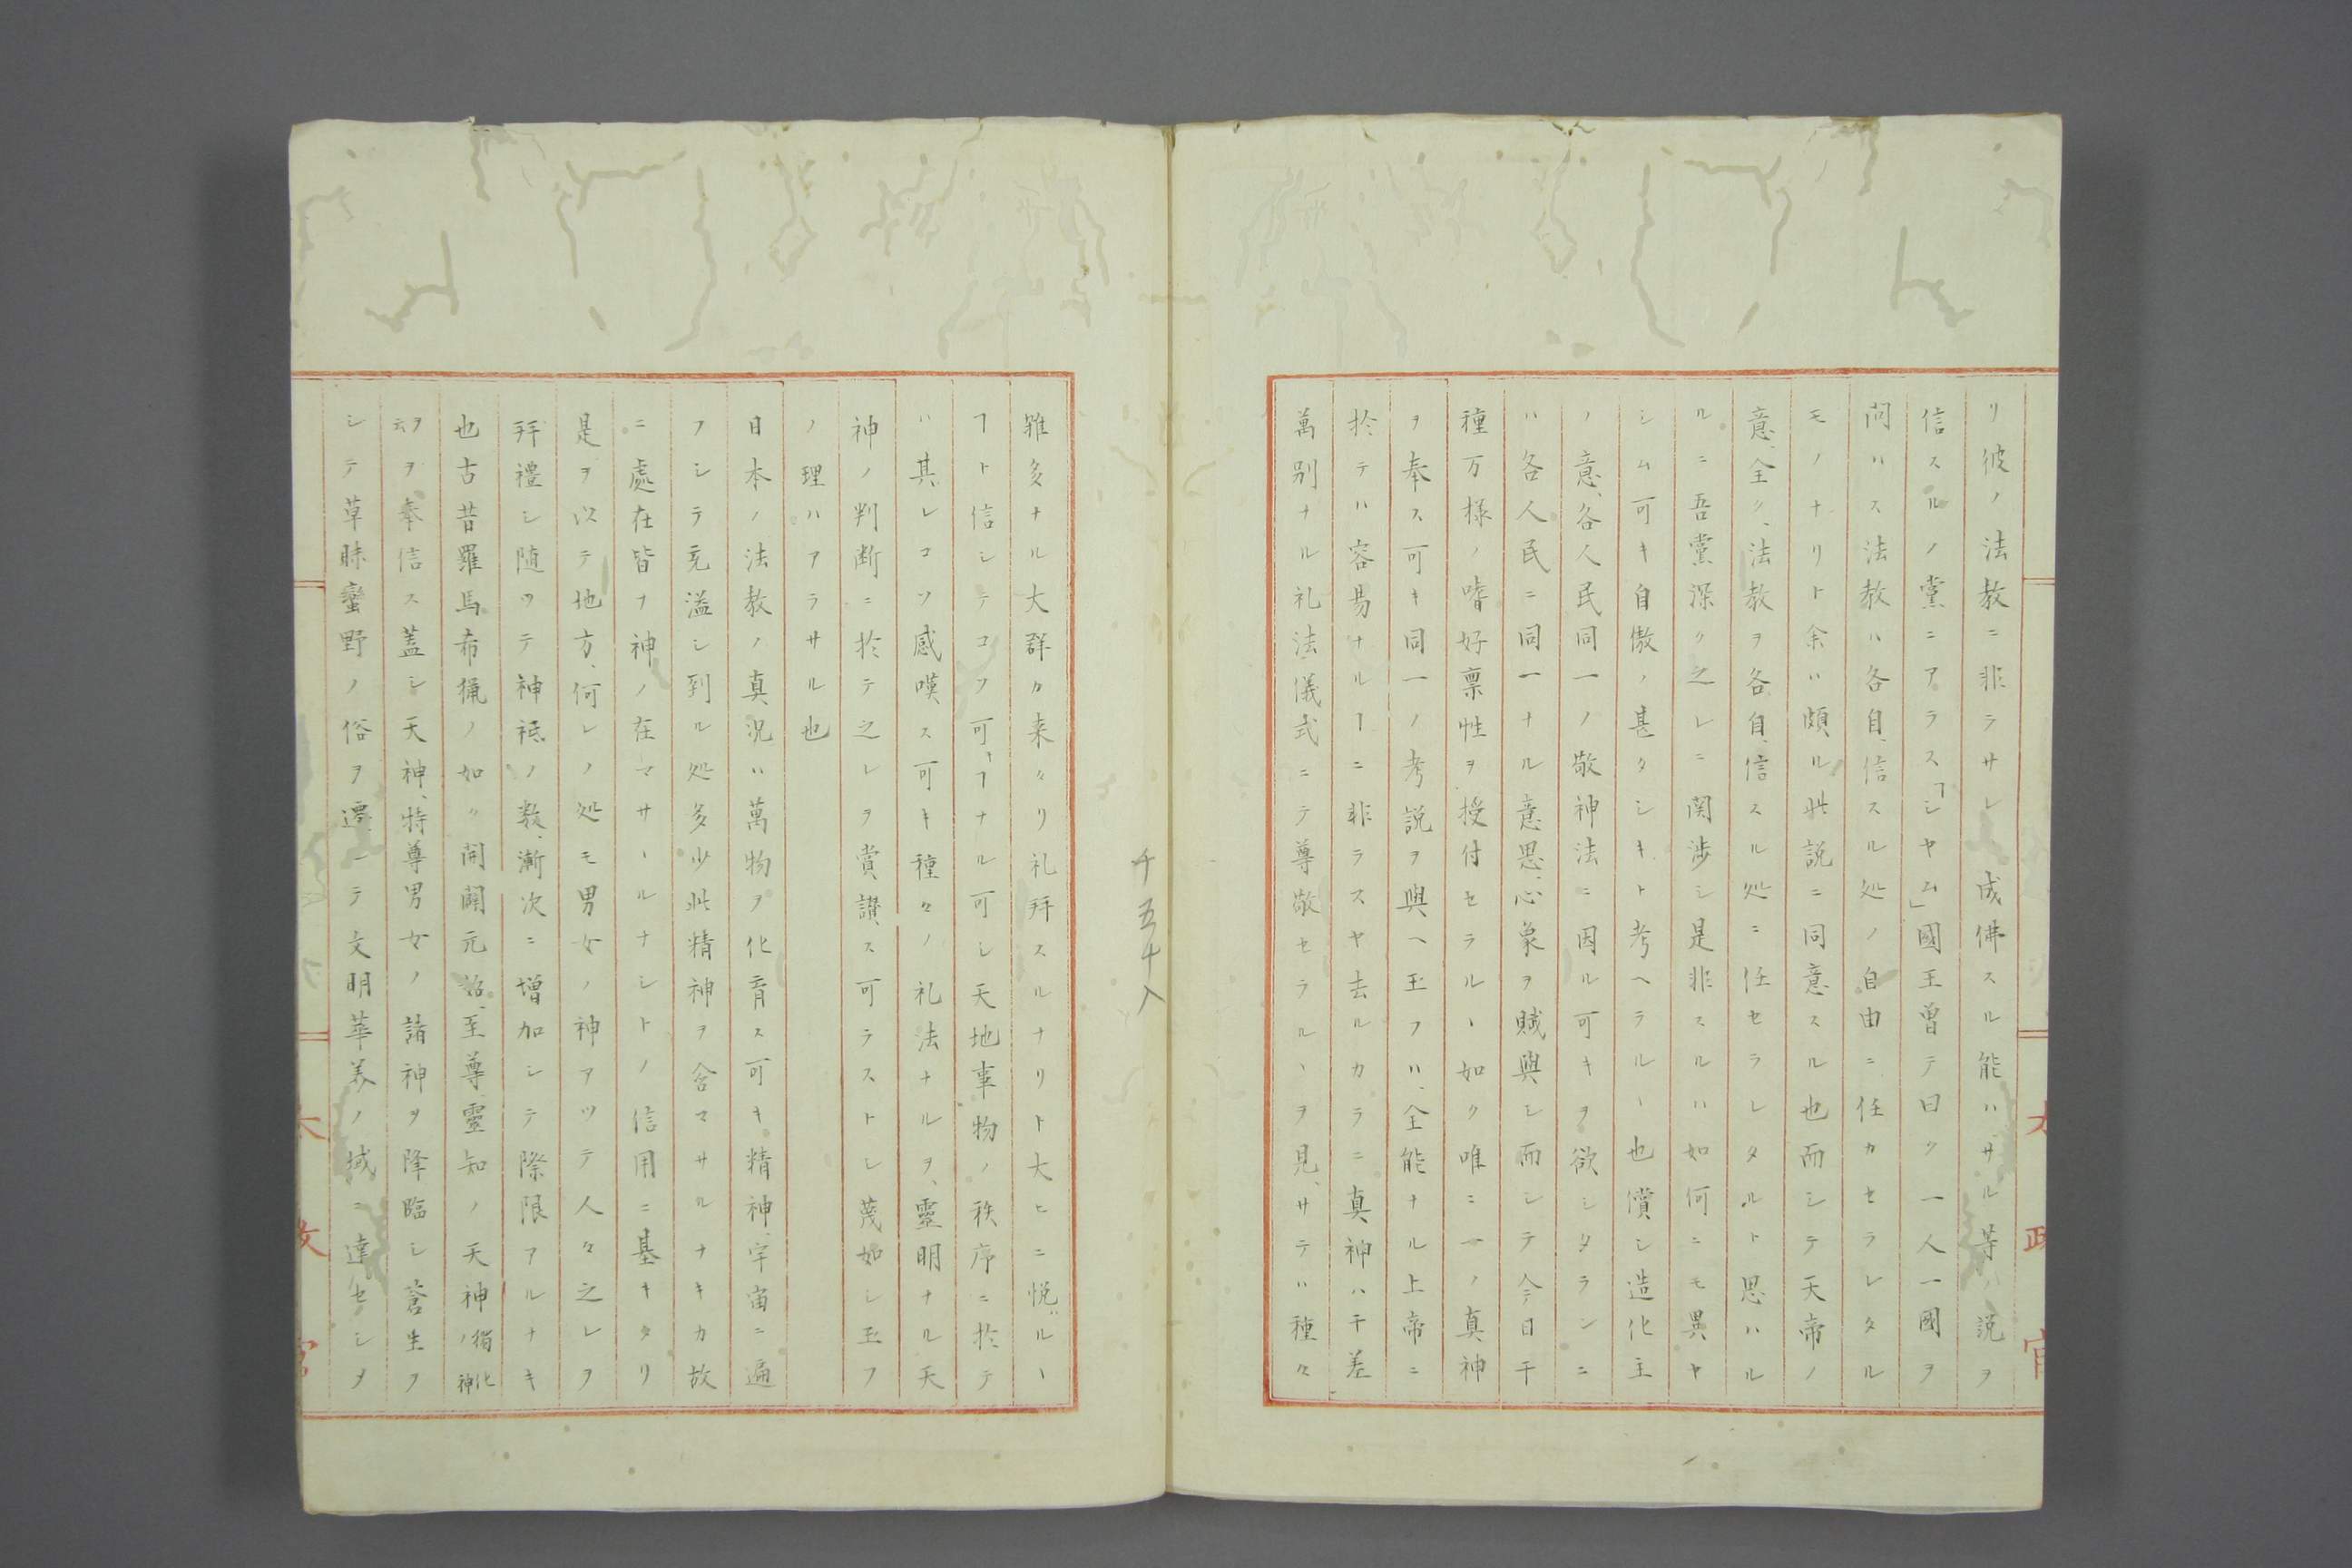 リ彼ノ法教ニ非ラサレハ成佛スル能ハサル等ノ説ヲ
信スルノ黨ニアラス「シヤム」國王曽テ曰ク一人一國ヲ
問ハス法教ハ各自信スル処ノ自由ニ任カセラレタル
モノナリト余ハ頗ル此説ニ同意スル也而シテ天帝ノ
意、全ク、法教ヲ各自、信スル処ニ任セラレタルト思ハル
ルニ吾黨深ク之レニ関渉シ是非スルハ如何ニモ異ヤ
シム可キ自傲ノ甚タシキト考ヘラルヽ也償シ造化主
ノ意、各人民同一ノ敬神法ニ因ル可キヲ欲シタランニ
ハ各人民ニ同一ナル意思、心象ヲ賦與シ而シテ今日千
種万様ノ嗜好禀性ヲ授付セラルヽ如ク唯ニ一ノ真神
ヲ奉ス可キ同一ノ考説ヲ與ヘ玉フハ、全能ナル上帝ニ
於テハ容易ナルヿニ非ラスヤ去ルカラニ真神ハ千差
萬別ナル礼法、儀式ニテ尊敬セラルヽヲ見、サテハ種々
千五十八
雑多ナル大群カ来々リ礼拜スルナリト大ヒニ悦ハルヽ
ヿト信シテコソ可、ヿナル可シ天地事物ノ秩序ニ於テ
ハ其レコソ感嘆ス可キ種々ノ礼法ナルヲ、靈明ナル天
神ノ判断ニ於テ之レヲ賞讃ス可ラストシ蔑如シ玉フ
ノ理ハアラサル也
日本ノ法教ノ真況ハ萬物ヲ化育ス可キ精神、宇宙ニ遍
フシテ充溢シ到ル処多少此精神ヲ含マサルナキカ故
ニ處在皆ナ神ノ在マサヽルナシトノ信用ニ基キタリ
是ヲ以テ地方、何レノ処モ男女ノ神アツテ人々之レヲ
拜禮シ随ツテ神祇ノ数、漸次ニ増加シテ際限アルナキ
也古昔羅馬希臘ノ如ク開闢元始、至尊、靈知ノ天神ノ独化神
云々ヲ奉信ス蓋シ天神、特尊男女ノ諸神ヲ降臨シ蒼生ヲ
シテ草昧蛮野ノ俗ヲ遷シテ文明華美ノ域ニ達セシメ
太政官
太政官